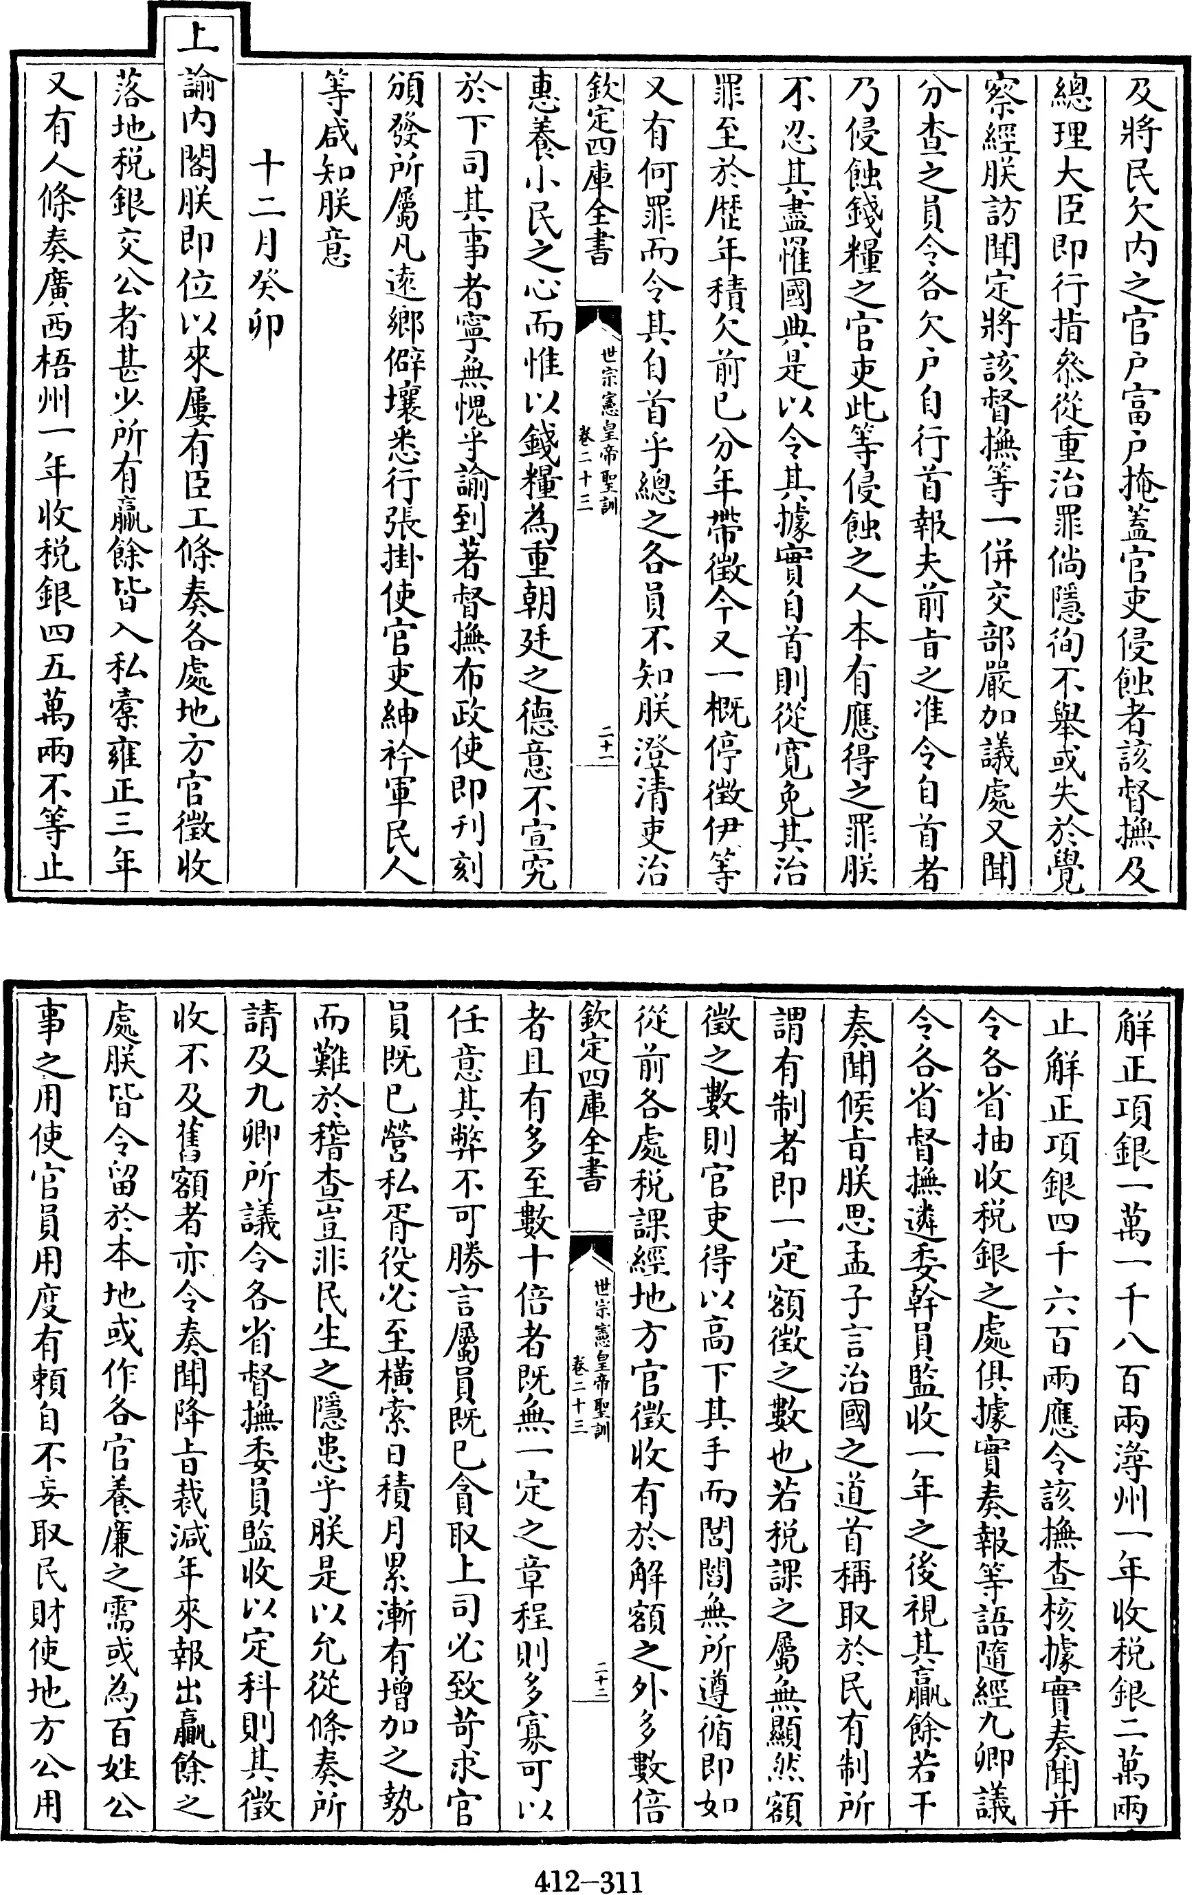 及將民欠内之官户富户掩蓋官吏侵蝕者該督撫及
總理大臣即行指叅從重治罪倘隱徇不舉或失於覺
察經朕訪聞定將該督撫等一併交部嚴加議處又聞
分查之員令各欠户自行首報夫前㫖之准令自首者
乃侵蝕錢糧之官吏此等侵蝕之人本有應得之罪朕
不忍其盡罹國典是以令其據實自首則從寛免其治
罪至於歴年積欠前已分年帶徵今又一概停徵伊等
又有何罪而令其自首乎總之各員不知朕澄清吏治
欽定四庫全書
世宗憲皇帝聖訓
卷二十三
二十一
惠養小民之心而惟以錢糧為重朝廷之德意不宣究
於下司其事者寧無愧乎諭到著督撫布政使即刋刻
頒發所屬凡逺鄉僻壤悉行張掛使官吏紳衿軍民人
等咸知朕意
十二月癸卯
上諭内閣朕即位以來屢有臣工條奏各處地方官徵收
落地税銀交公者甚少所有贏餘皆入私橐雍正三年
又有人條奏廣西梧州一年收税銀四五萬兩不等止
解正項銀一萬一千八百兩潯州一年收税銀二萬兩
止解正項銀四千六百兩應令該撫查核據實奏聞并
令各省抽收税銀之處俱據實奏報等語隨經九卿議
令各省督撫遴委幹員監收一年之後視其贏餘若干
奏聞候㫖朕思孟子言治國之道首稱取於民有制所
謂有制者即一定額徵之數也若税課之屬無顯然額
徵之數則官吏得以高下其手而閭閻無所遵循即如
從前各處税課經地方官徵收有於解額之外多數倍
欽定四庫全書
世宗憲皇帝聖訓
卷二十三
二十二
者且有多至數十倍者既無一定之章程則多寡可以
任意其弊不可勝言屬員既已貪取上司必致苛求官
員既已營私胥役必至橫索日積月累漸有增加之勢
而難於稽查豈非民生之隱患乎朕是以允從條奏所
請及九卿所議令各省督撫委員監收以定科則其徵
收不及舊額者亦令奏聞降㫖裁減年來報出贏餘之
處朕皆令留於本地或作各官養廉之需或為百姓公
事之用使官員用度有賴自不妄取民財使地方公用
412-311